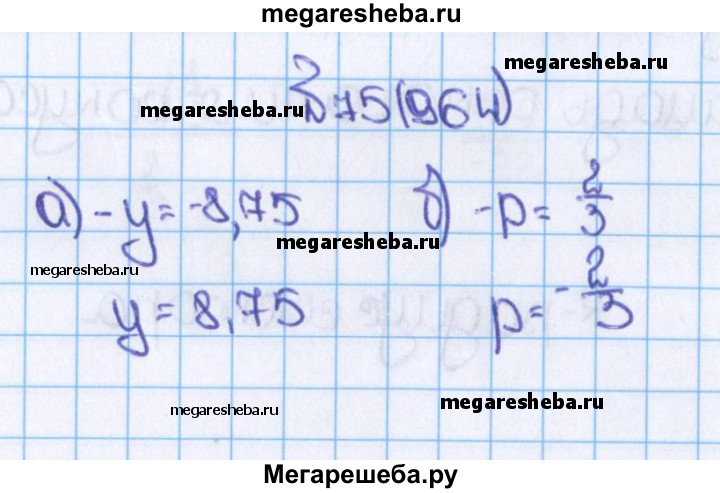 megaresheba.ru
megaresheba.ru
№ 75 (964)
megaresheba.ru
а) -y = -8,75 б) -p = 2/3
megaresheba.ru
megaresheba.ru
y = 8,75 p = -2/3
megaresheba.ru
megaresheba.ru
Мегарешеба.ру